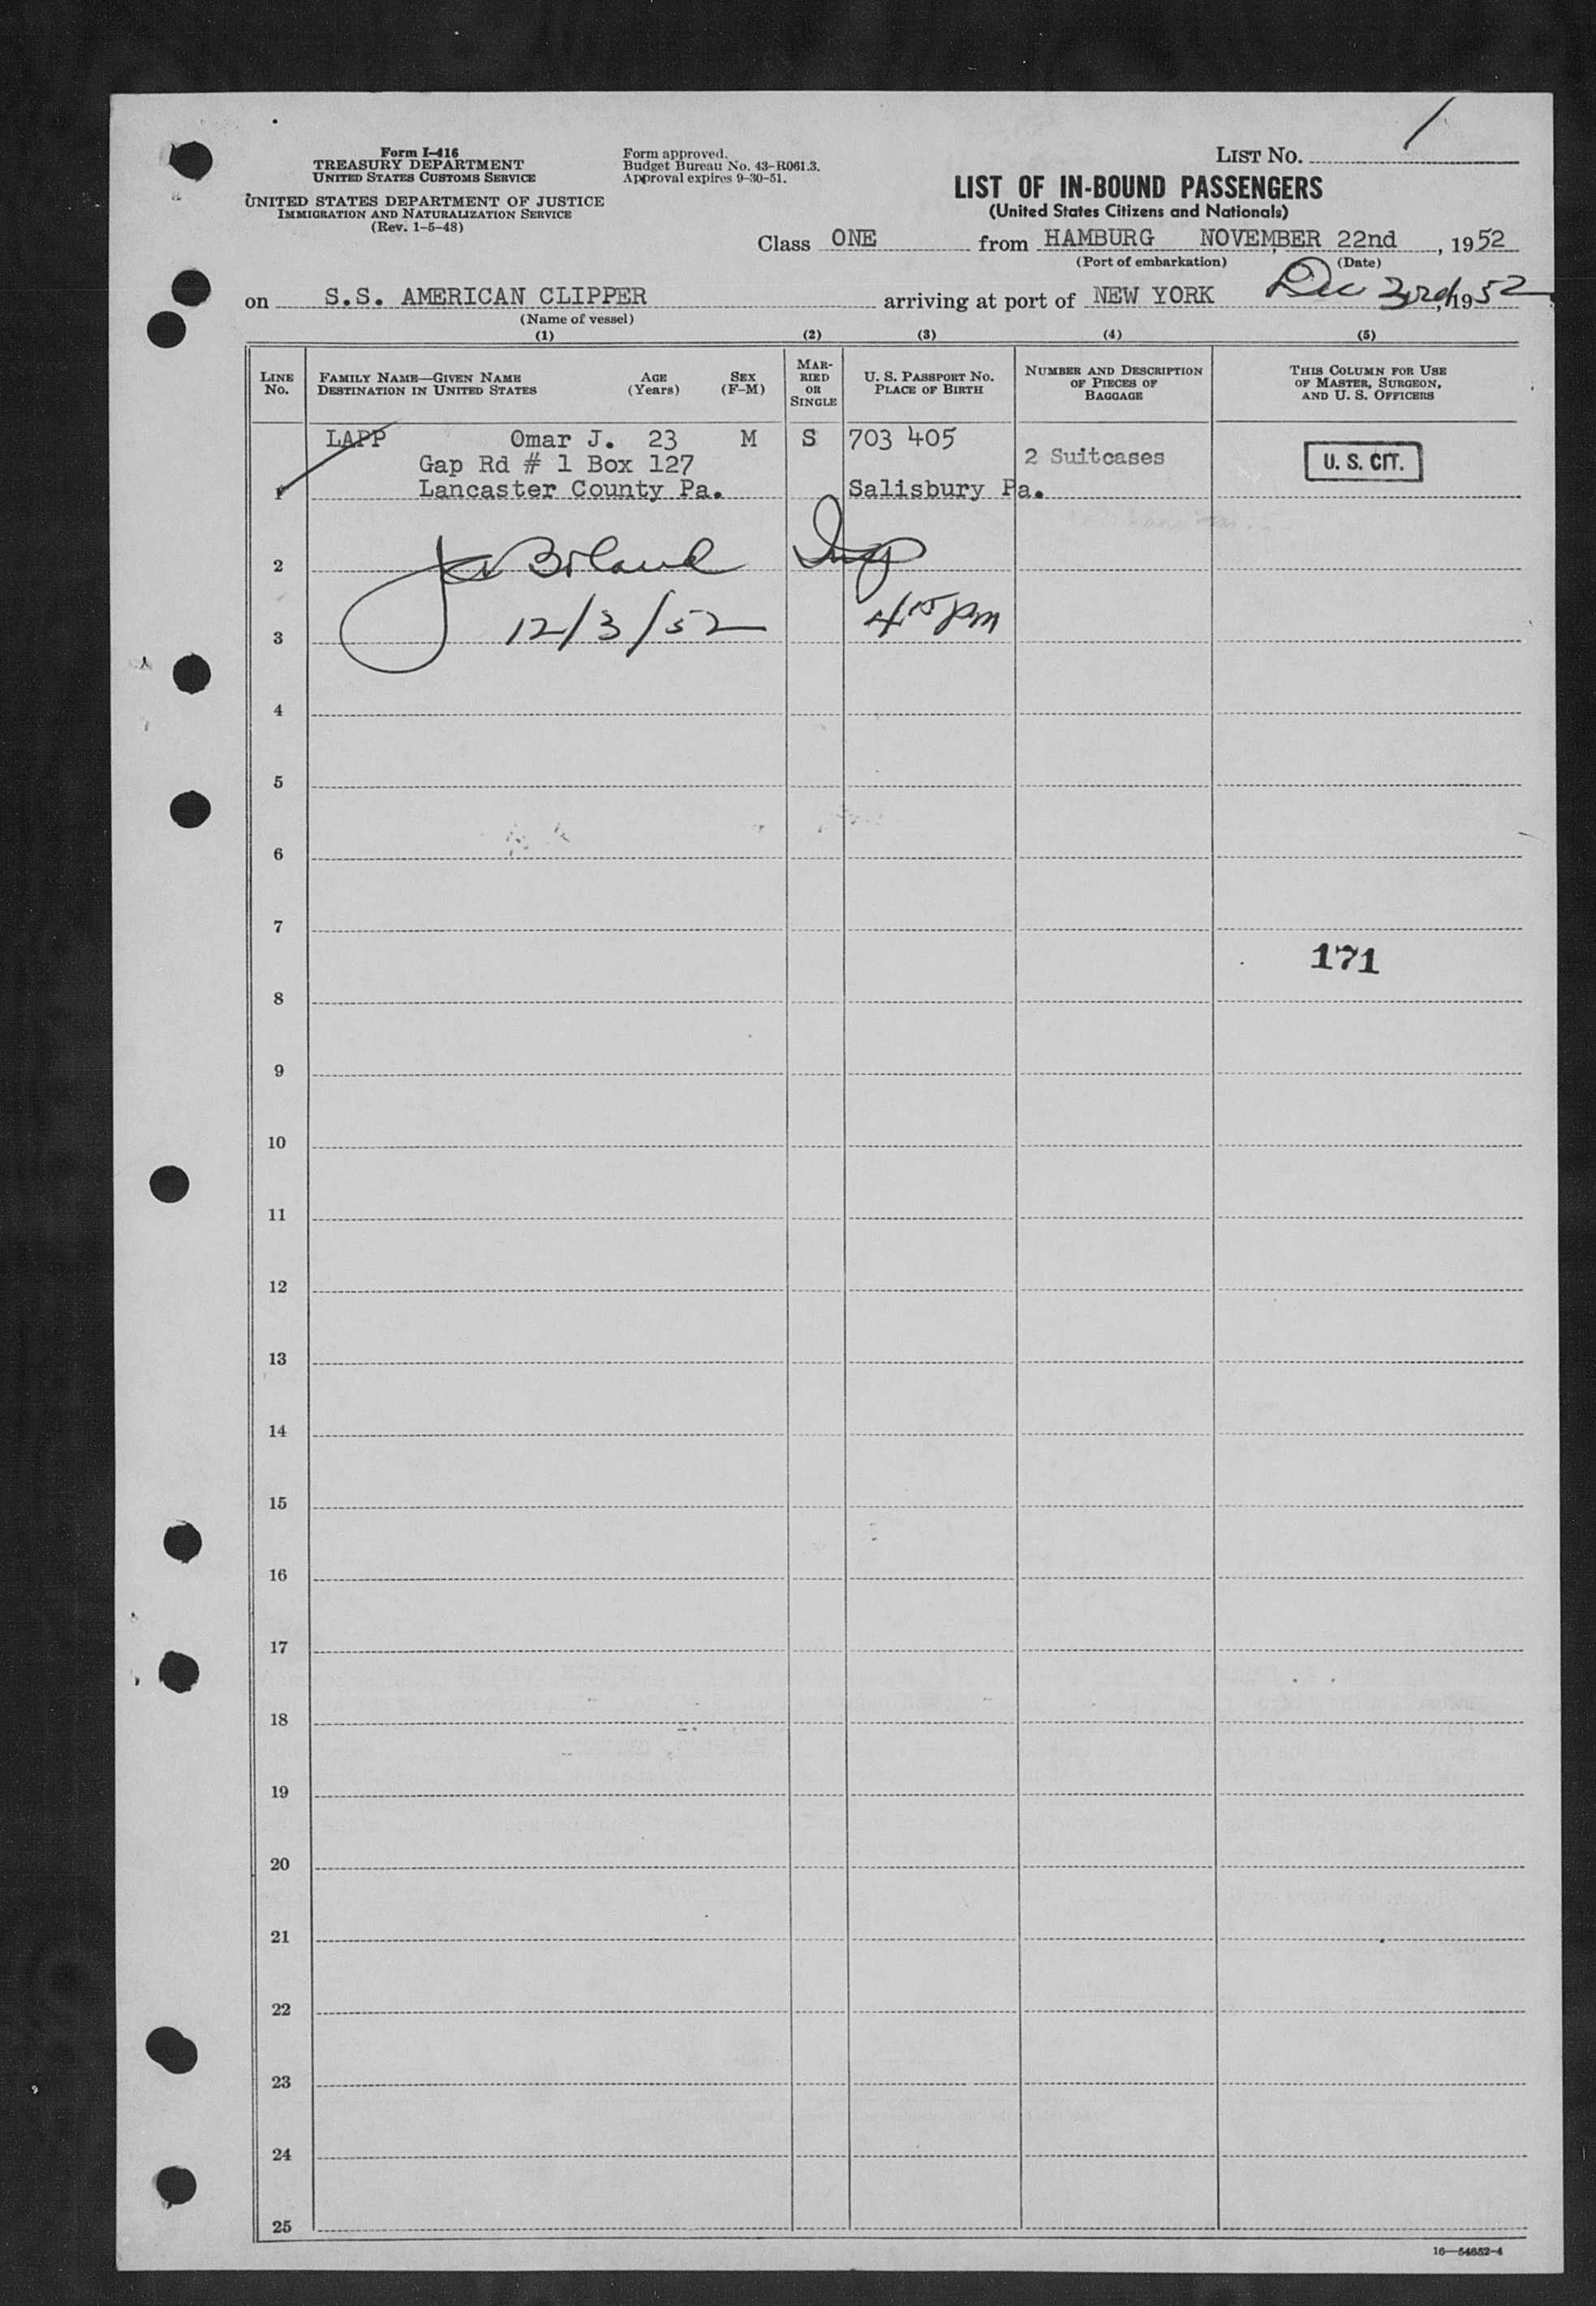 Form I-416
TREASURY DEPARTMENT
UNITED STATES CUSTOMS SERVICE
UNITED STATES DEPARTMENT OF JUSTICE
IMMIGRATION AND NATURALIZATION SERVICE
(Rev. 1-5-48)
Form approved.
Budget Bureau No. 43-R061.3.
Approval expires 9-30-51.
LIST No. 1
LIST OF IN-BOUND PASSENGERS
(United States Citizens and Nationals)
Class ONE from HAMBURG NOVEMBER 22nd, 1952
(Port of embarkation) (Date)
on S.S. AMERICAN CLIPPER arriving at port of NEW YORK Dec 3rd, 1952
(Name of vessel)
(1) (2) (3) (4) (5)
LINE No.
FAMILY NAME—GIVEN NAME
DESTINATION IN UNITED STATES
AGE (Years)
SEX (F-M)
MARRIED OR SINGLE
U. S. PASSPORT No.
PLACE OF BIRTH
NUMBER AND DESCRIPTION OF PIECES OF BAGGAGE
THIS COLUMN FOR USE OF MASTER, SURGEON, AND U. S. OFFICERS
LAPP Omar J. 23 M S 703 405
Gap Rd # 1 Box 127 2 Suitcases U. S. CIT.
1 Lancaster County Pa. Salisbury Pa.
2 Boland Insp
3 12/3/52 4 15 pm
4
5
6
7
171
8
9
10
11
12
13
14
15
16
17
18
19
20
21
22
23
24
25
16—54652-4